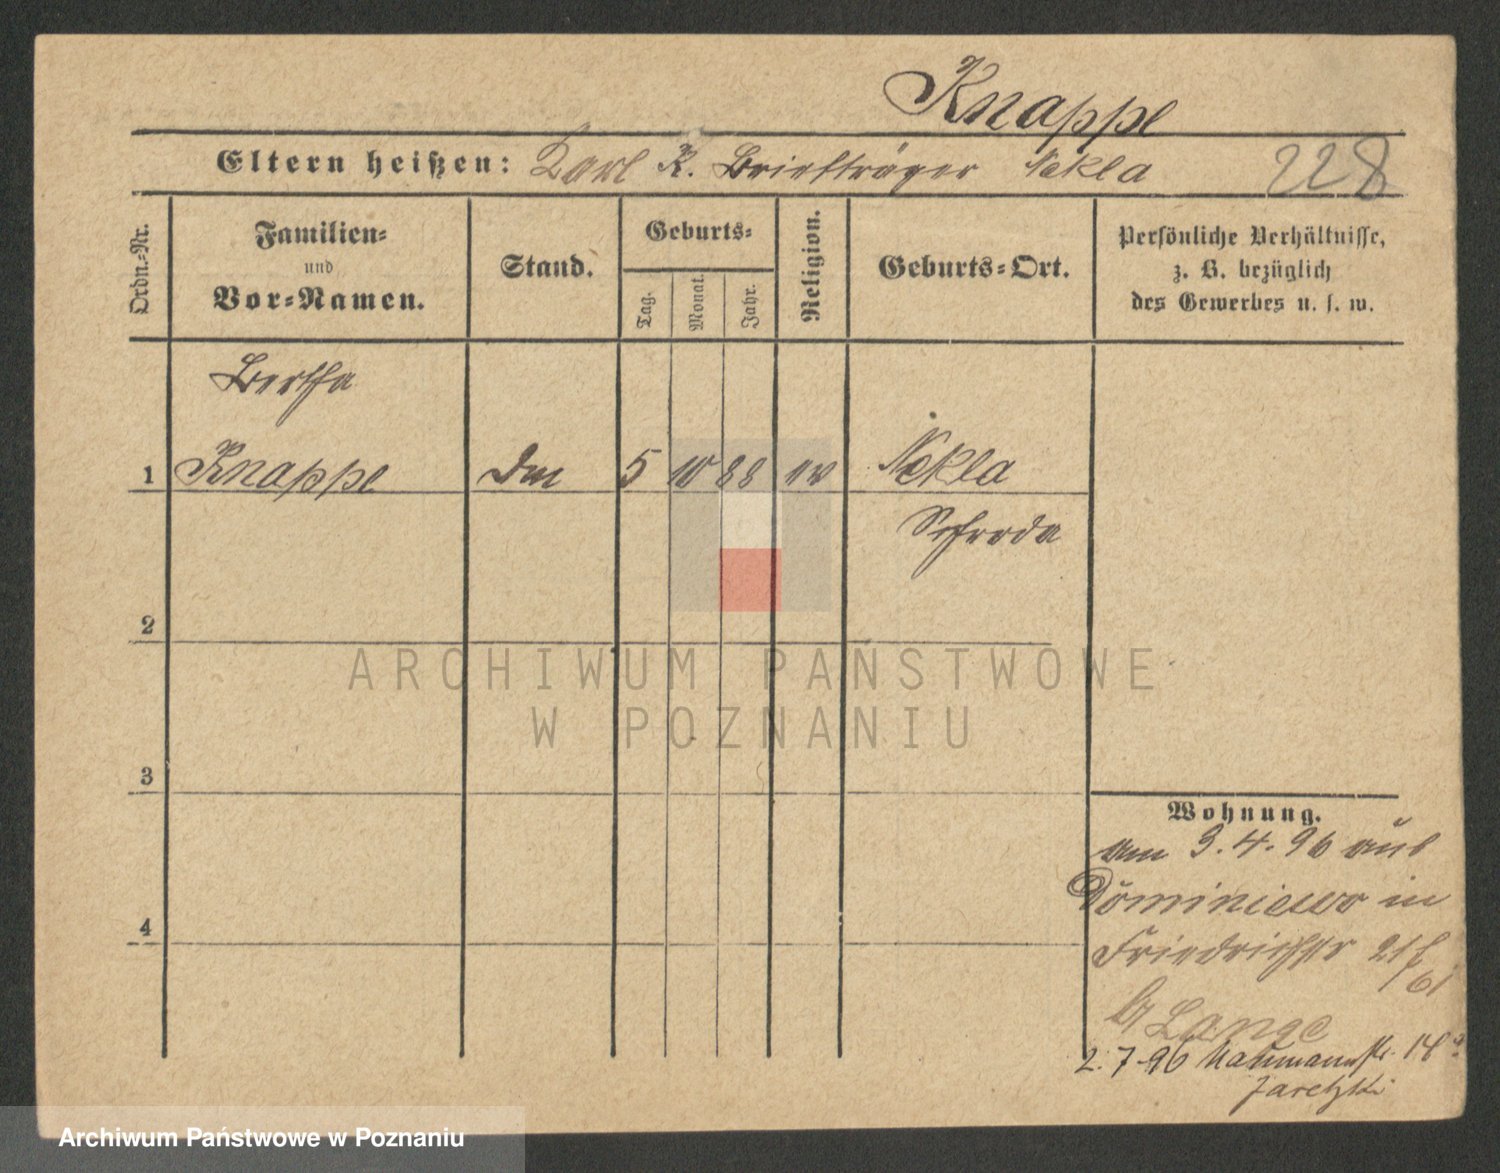 Knappe
Eltern heißen: Karl K. Briefträger Nekla 228
Ordn.-Nr.
Familien-
und
Vor-Namen.
Stand.
Geburts-
Tag.
Monat.
Jahr.
Religion.
Geburts-Ort.
Persönliche Verhältnisse,
z. B. bezüglich
des Gewerbes u. s. w.
Bertha
1 Knappe 5 10 88 ev Nekla
Schroda
2
3
4
Wohnung.
am 3.4.96 aus
Dominiewo in
Friedrichstr 21
b/ Lange
2.7.96 Naumannstr. 14
Jaretzki
ARCHIWUM PAŃSTWOWE
W POZNANIU
Archiwum Państwowe w Poznaniu